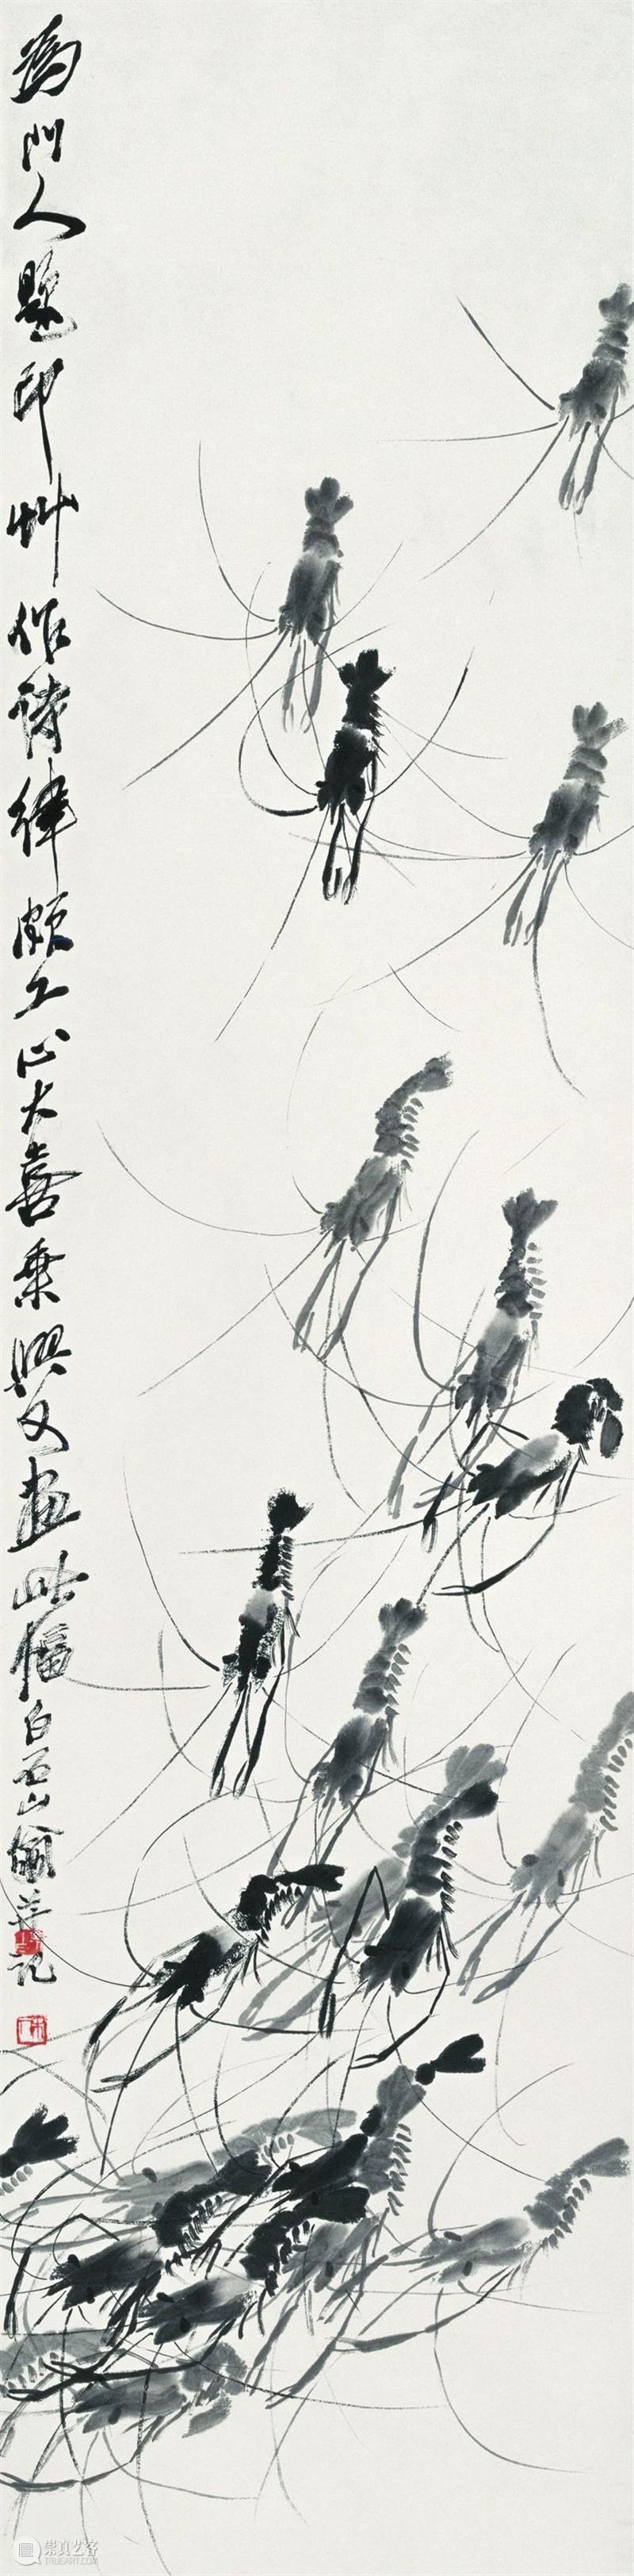 為門人題印艸作詩律頗工心大喜乘興又畫此幅白石山翁並記
崇真艺客
TRUEART.COM